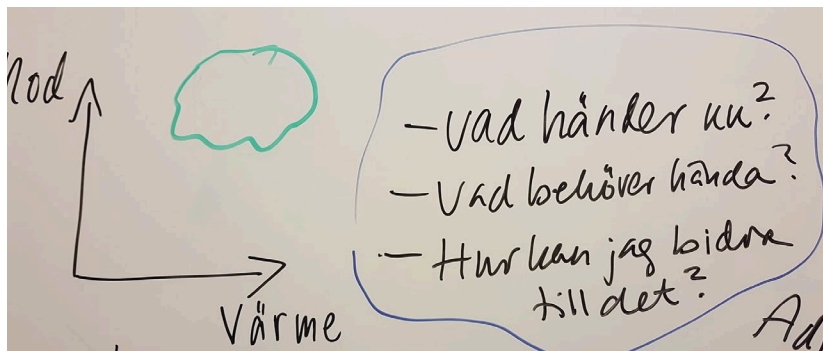 Mod
Värme
- Vad händer nu?
- Vad behöver hända?
- Hur kan jag bidra
till det?
Ad